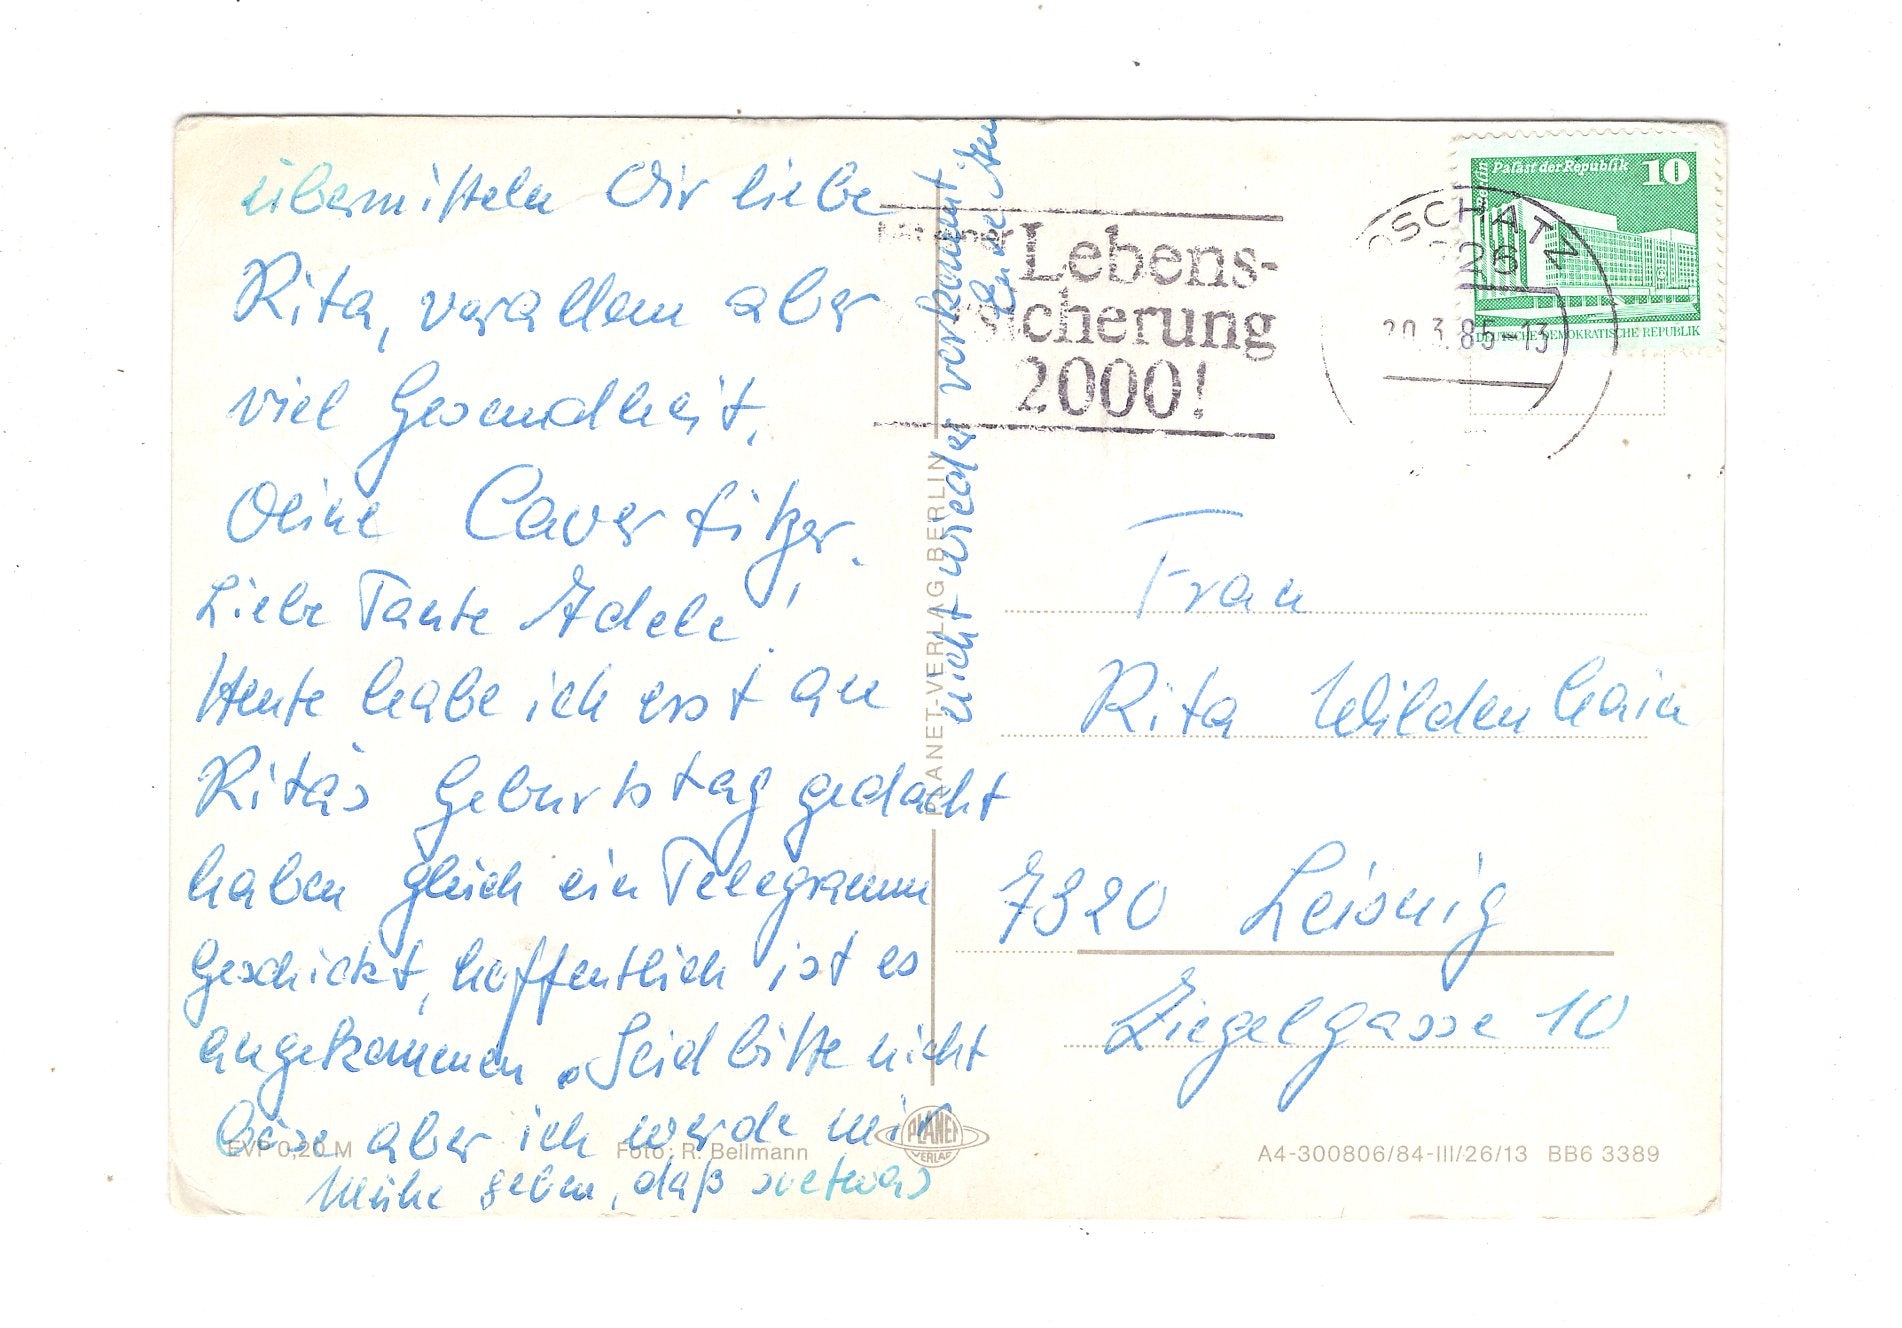 übermitteln Dir liebe
Rita, vorallem aber
viel Gesundheit,
Deine Cavertitzer.
Liebe Tante Adele!
Heute habe ich erst an
Rita's Geburtstag gedacht
haben gleich ein Telegramm
geschickt, hoffentlich ist es
angekommen. Seid bitte nicht
böse aber ich werde mir
Mühe geben, daß soetwas
nicht wieder vorkommt.
Eure
EVP 0,20 M
Foto: R. Bellmann
PLANET-VERLAG BERLIN
PLANET
VERLAG
Mit einer
Lebens-
versicherung
2000!
OSCHATZ
7326
20.3.85-13
Berlin Palast der Republik 10
DEUTSCHE DEMOKRATISCHE REPUBLIK
Frau
Rita Wildenhain
7320 Leisnig
Ziegelgasse 10
A4-300806/84-III/26/13 BB6 3389